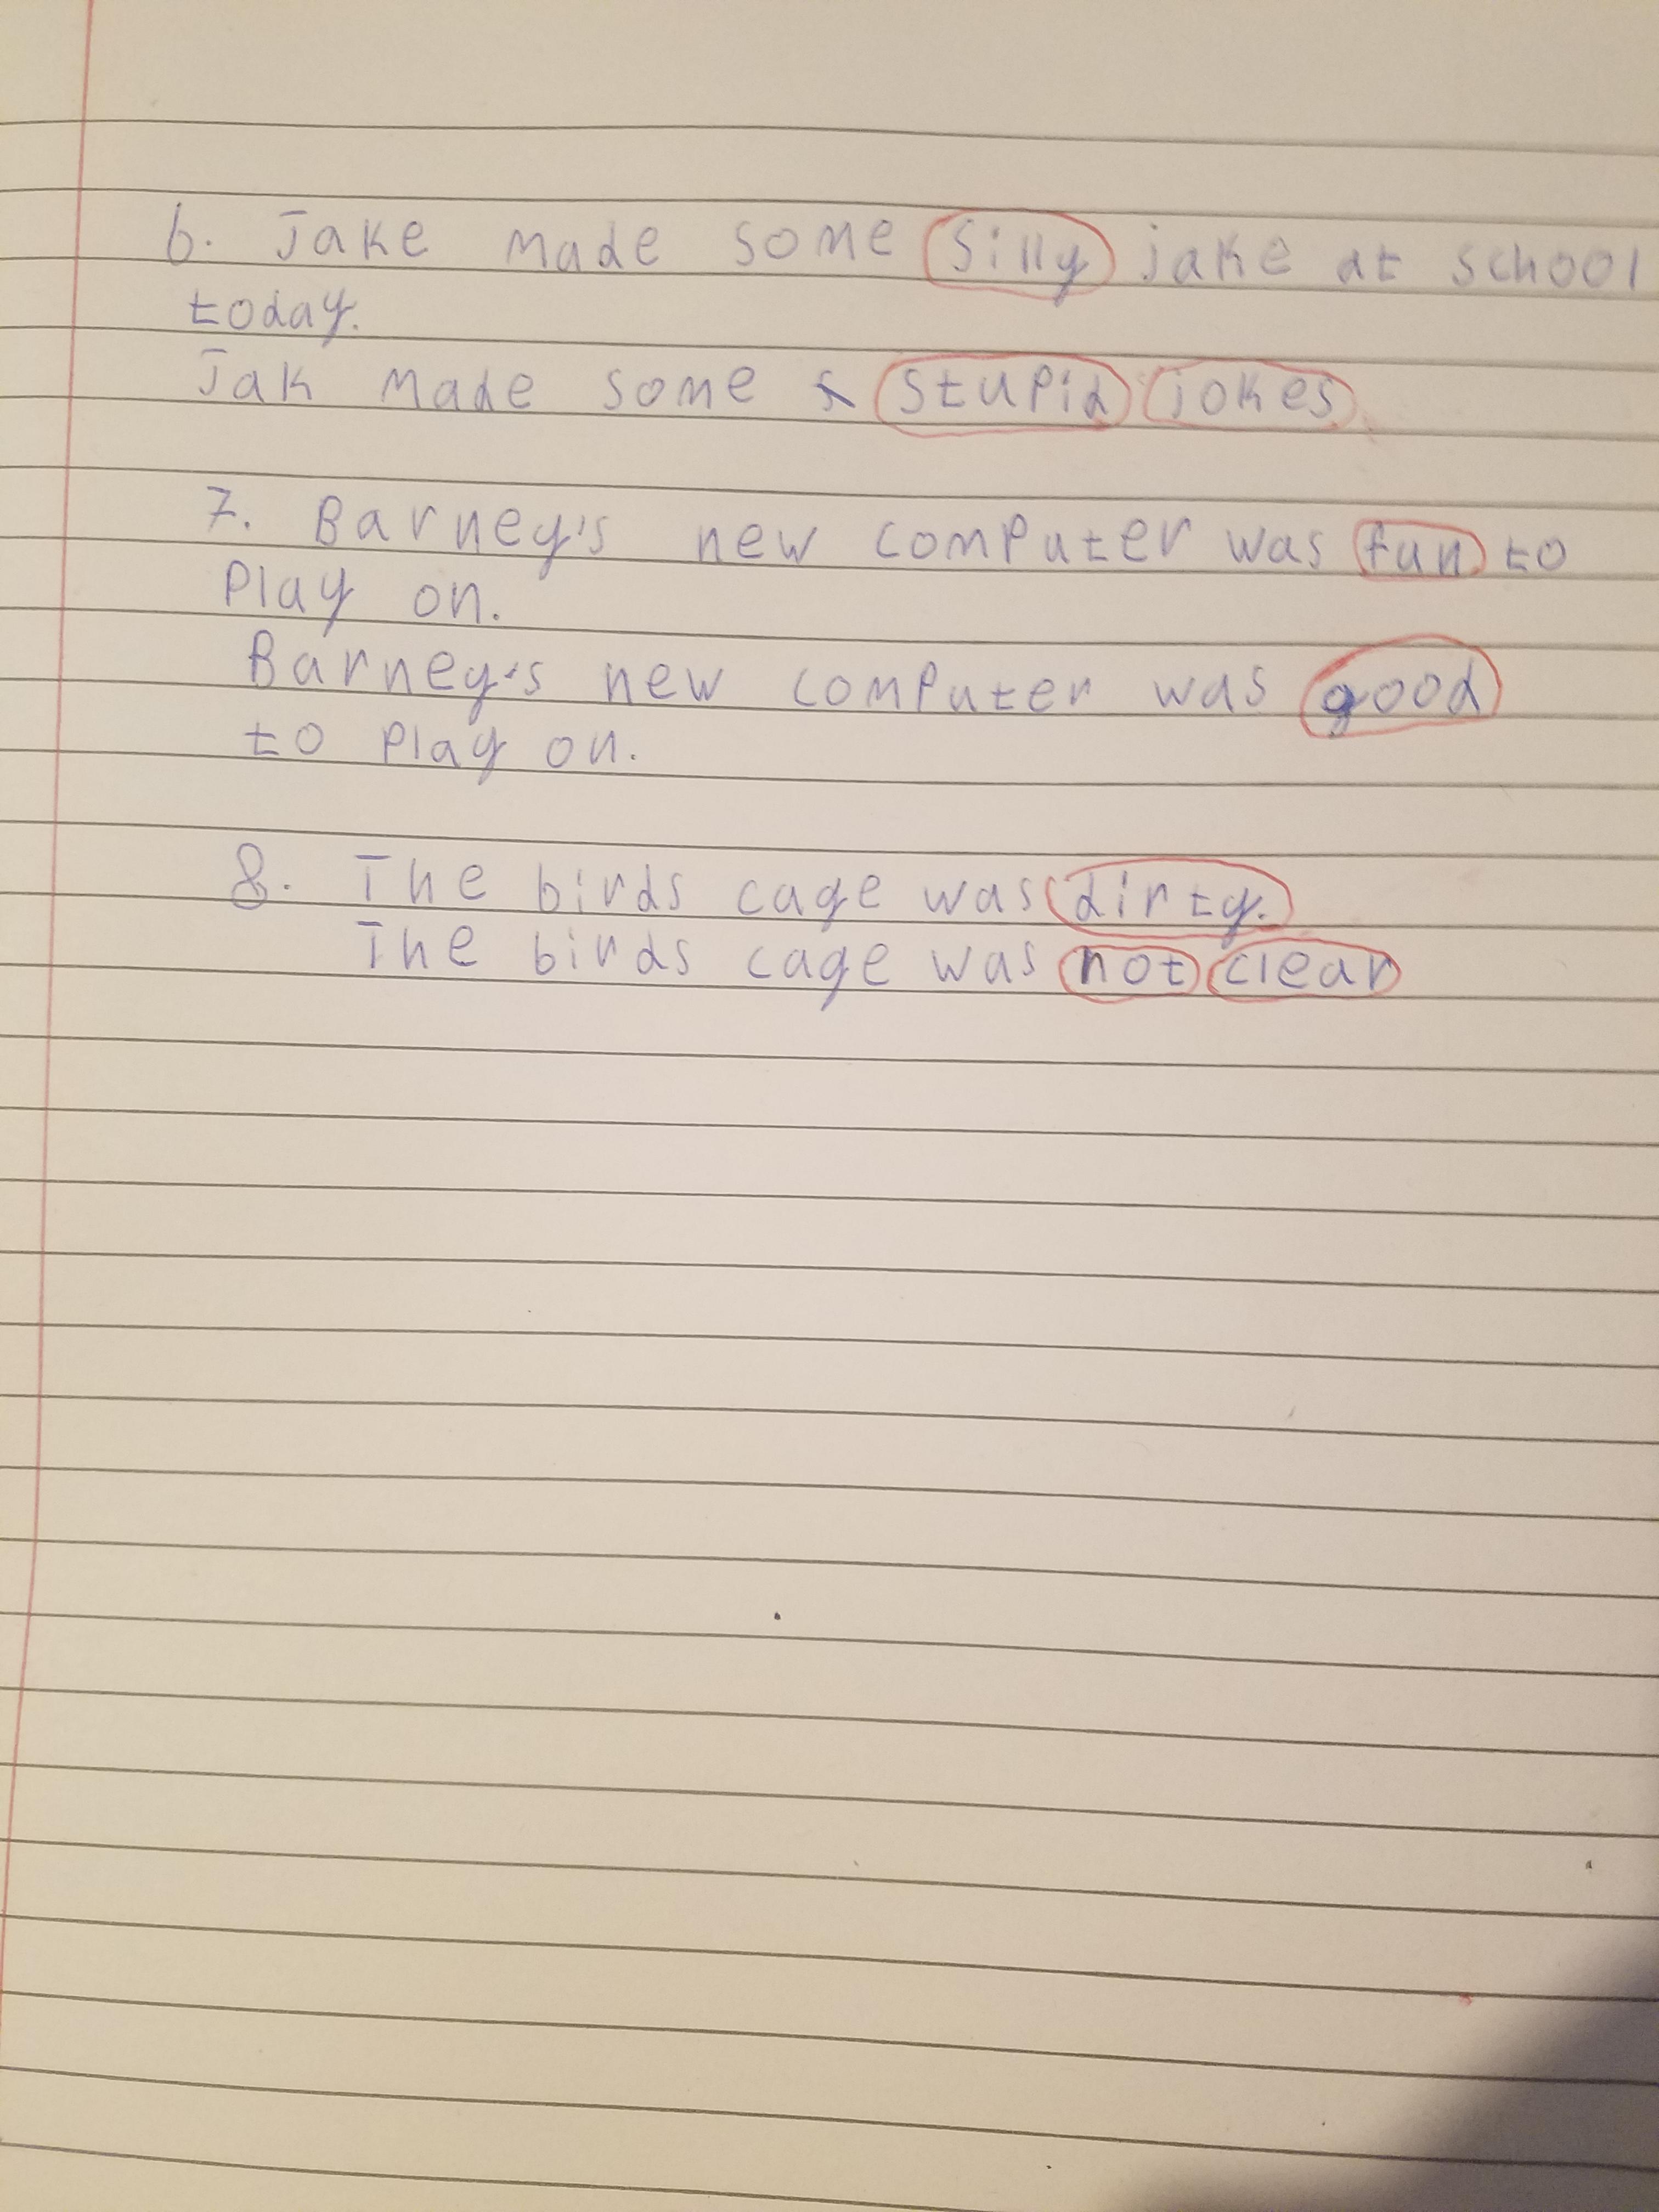 6. Jake made some silly jake at school
today.
Jak made some stupid jokes
7. Barney's new computer was fun to
Play on.
Barney's new computer was good
to play on.
8. The birds cage was dirty.
The birds cage was not clear